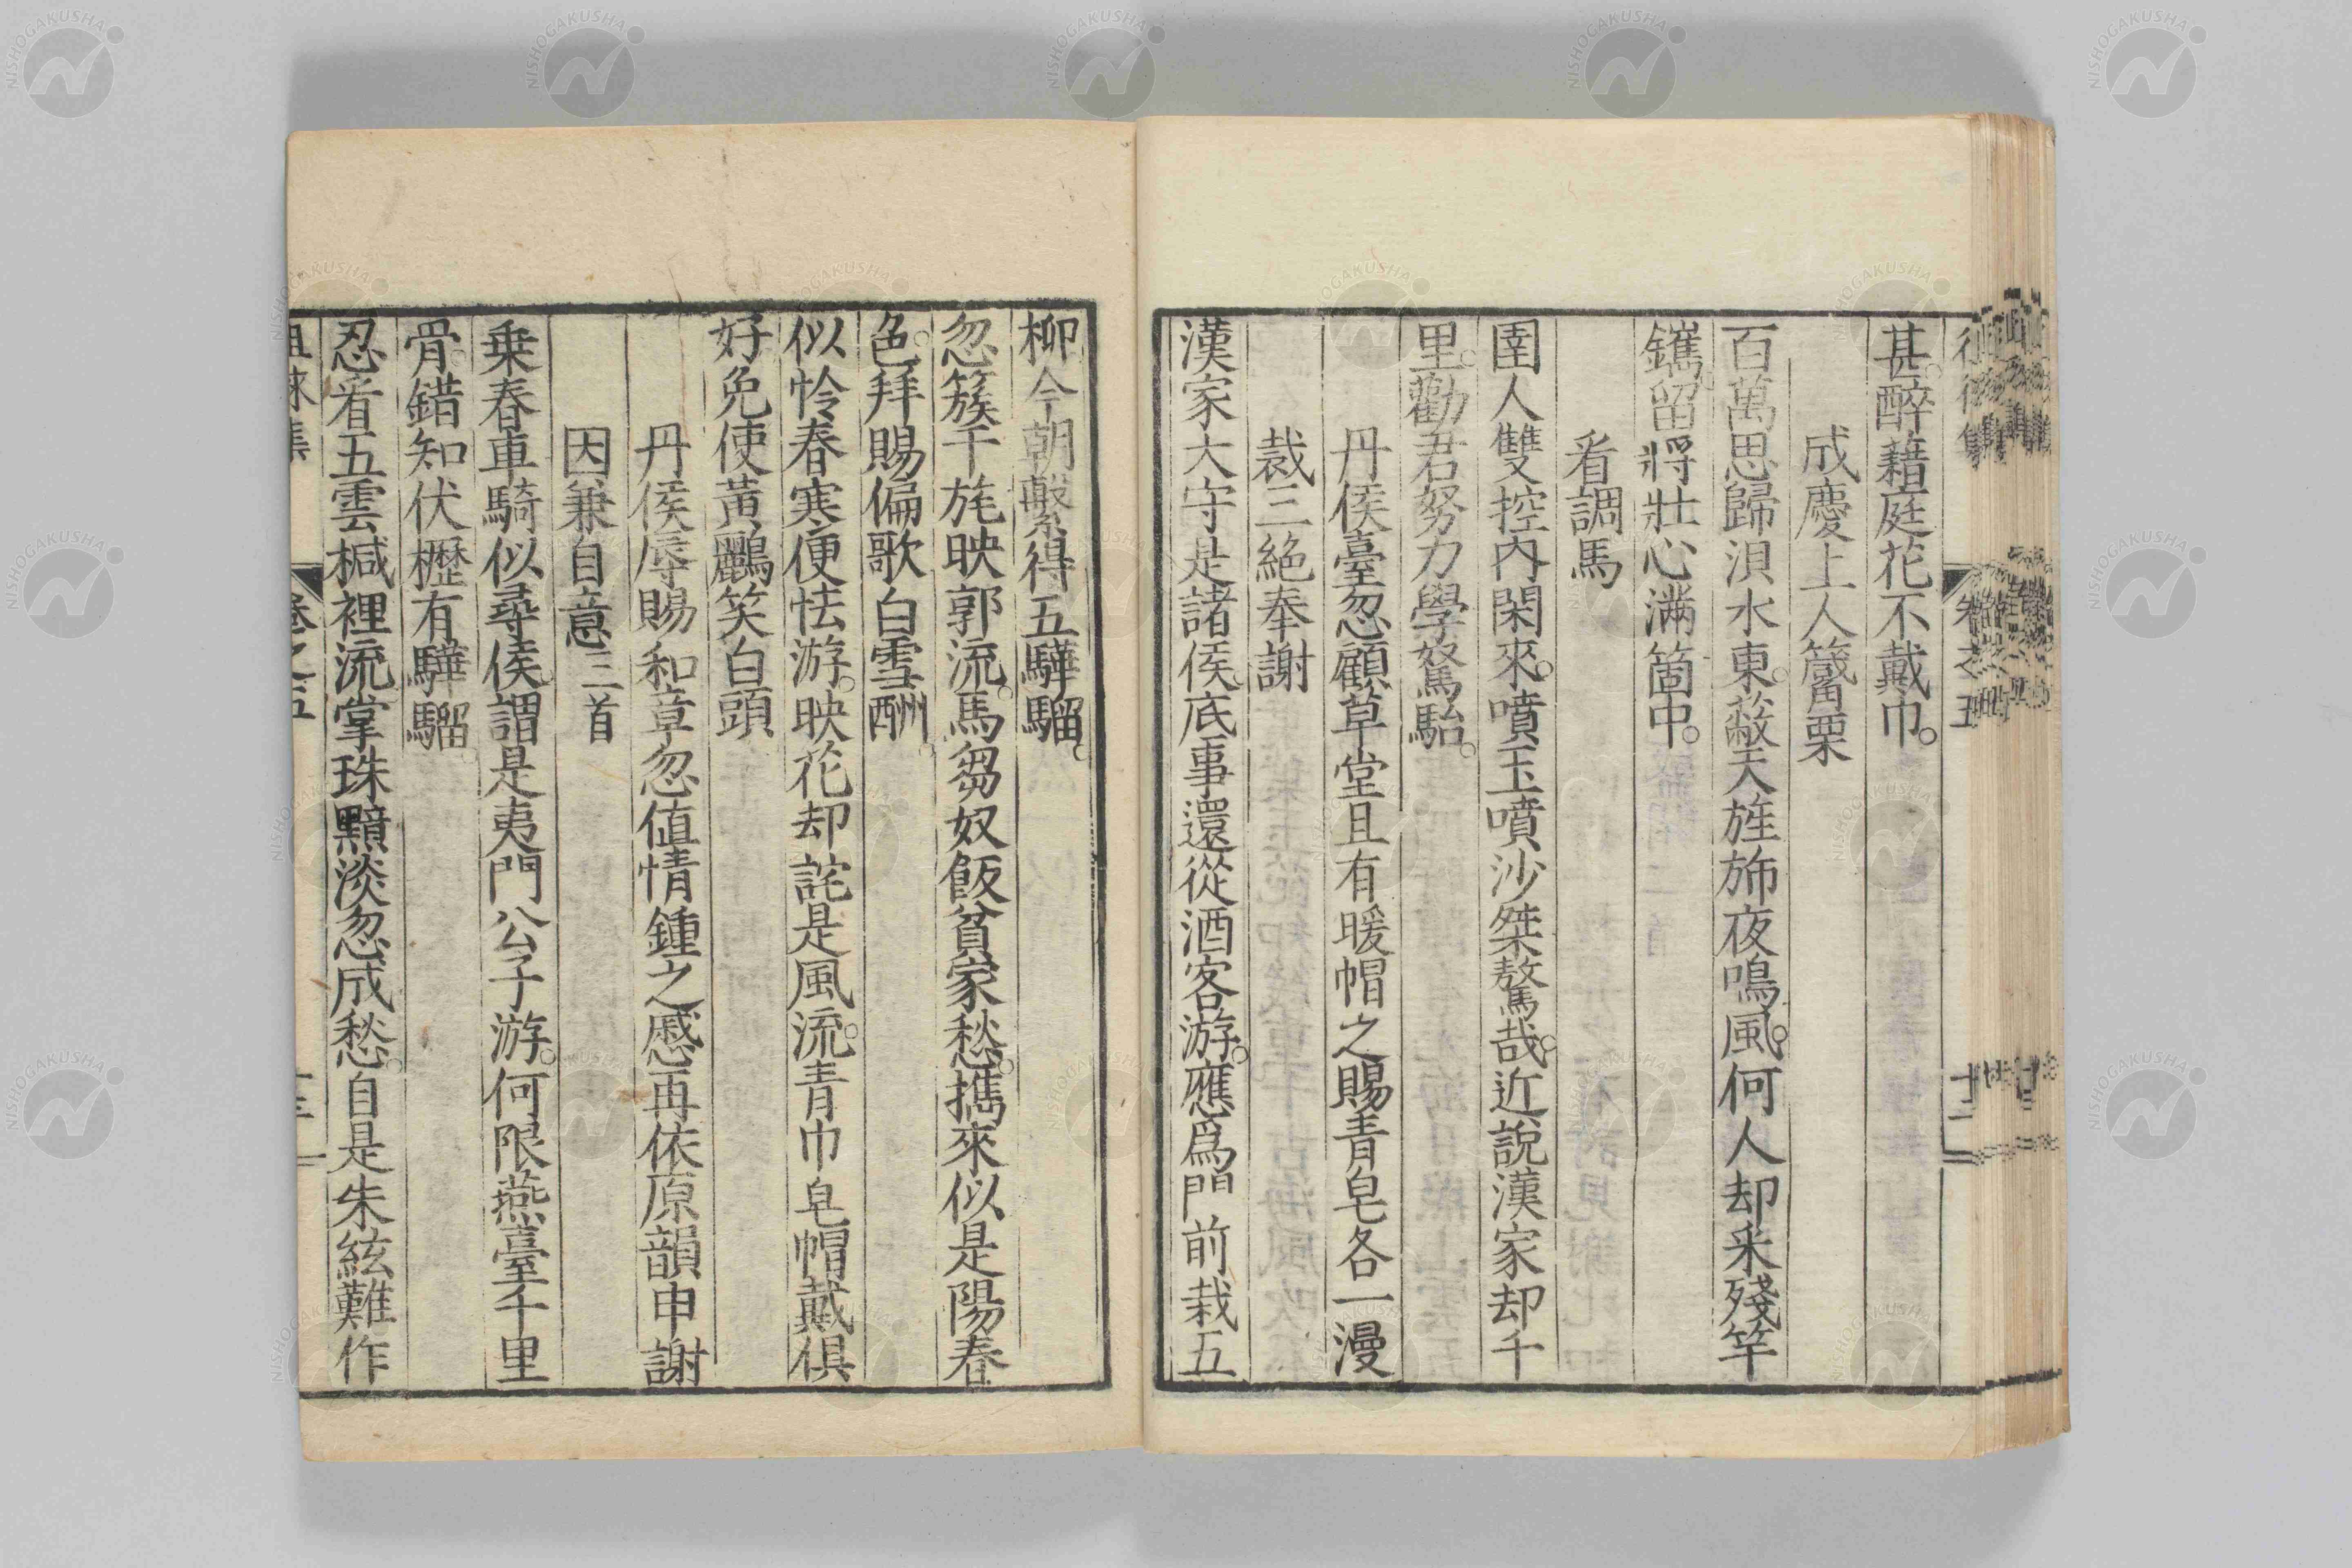 甚。醉藉庭花不戴巾。
成慶上人篳篥
百萬思歸浿水東。蔽天旌斾夜鳴風。何人却采殘竿
鑴。留將壯心滿箇中。
看調馬
圉人雙控內閑來。噴玉噴沙桀驁哉。近說漢家却千
里。勸君努力學駑駘。
丹侯臺忽顧草堂且有暖帽之賜青皂各一漫
裁三絕奉謝
漢家大守是諸侯。底事還從酒客游。應爲門前栽五
柳今朝繫得五驊騮。
忽簇干旄映郭流。馬芻奴飯貧家愁。攜來似是陽春
色。拜賜偏歌白雪酬。
似怜春寒便怯游。映花却詫是風流。青巾皂帽戴俱
好免使黃鸝笑白頭
丹侯辱賜和章忽値情鍾之慼再依原韻申謝
因兼自意三首
乗春車騎似尋侯。謂是夷門公子游。何限燕臺千里
骨。錯知伏櫪有驊騮。
忍看五雲椷裡流掌珠黯淡忽成愁。自是朱絃難作
徂徠集
卷之五
十二
NISHOGAKUSHA